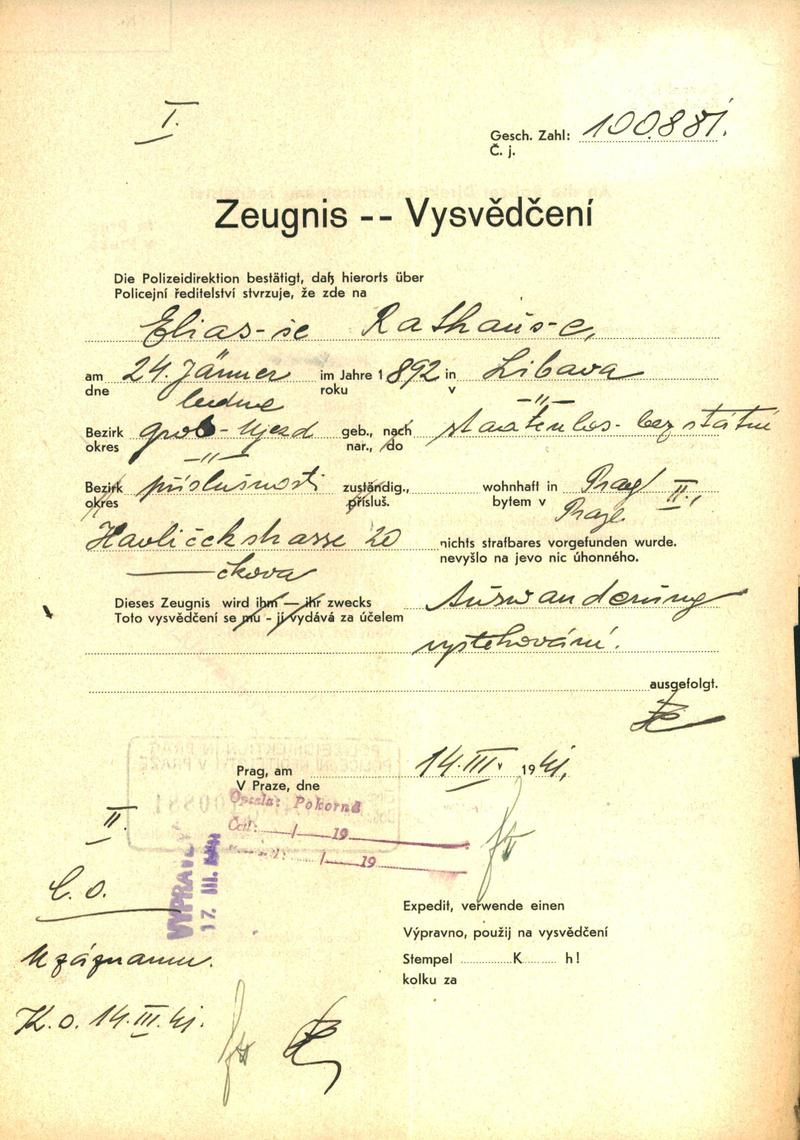 I.
Gesch. Zahl: 100881.
Č. j.
Zeugnis -- Vysvědčení
Die Polizeidirektion bestätigt, daß hierorts über
Policejní ředitelství stvrzuje, že zde na
Elias-ie Rathaus-e,
am 24. Jänner im Jahre 1892 in Libava
dne ledna roku v -"-
Bezirk -Ujezd geb., nach staatenlos - bez státní
okres -"- nar., do
Bezirk příslušnosti zuständig., wohnhaft in Prag II.,
okres přísluš. bytem v Praze
Havlíčekstrasse 20 nichts strafbares vorgefunden wurde.
čkova nevyšlo na jevo nic úhonného.
Dieses Zeugnis wird ihm — ihr zwecks Auswanderung
Toto vysvědčení se mu - jí vydává za účelem
vystěhování.
ausgefolgt.
Prag, am 14. III. 1941.
V Praze, dne
Opsala: Pokorná
Četl: / 19
/ 19
II.
VYPRAVENO
17. III. 1941
C. o.
K záznamu.
K. o. 14. III. 41.
Expedit, verwende einen
Výpravno, použij na vysvědčení
Stempel K h!
kolku za